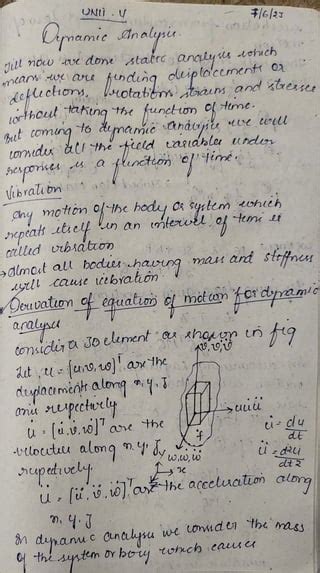 UNIT - V
7/6/23
Dynamic Analysis
Till now we done static analysis which
means we are finding displacements or
deflections, rotations strains and stresses
without taking the function of time.
But coming to dynamic analysis we will
consider all the field variables under
responses is a function of time.
Vibration
Any motion of the body or system which
repeats itself in an interval of time is
called vibration
→ Almost all bodies having mass and stiffness
will cause vibration
Derivation of equation of motion for dynamic
analysis
consider a 3D element as shown in fig
Let, u = [u v w]ᵀ are the
displacements along x, y, z
axis respectively
u̇ = [u̇ v̇ ẇ]ᵀ are the
velocities along x, y, z
respectively.
ü = [ü v̈ ẅ]ᵀ are the acceleration along
x, y, z
v, v̇, v̈
u u̇ ü
w, ẇ, ẅ
y
x
z
u̇ = du/dt
ü = d²u/dt²
In dynamic analysis we consider the mass
of the system or body which causes